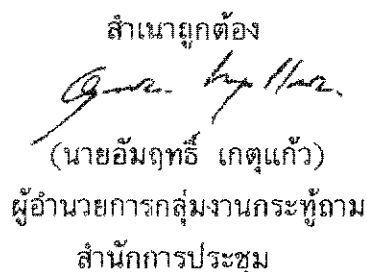 สำเนาถูกต้อง
(นายอัมฤทธิ์ เกตุแก้ว)
ผู้อำนวยการกลุ่มงานกระทู้ถาม
สำนักการประชุม